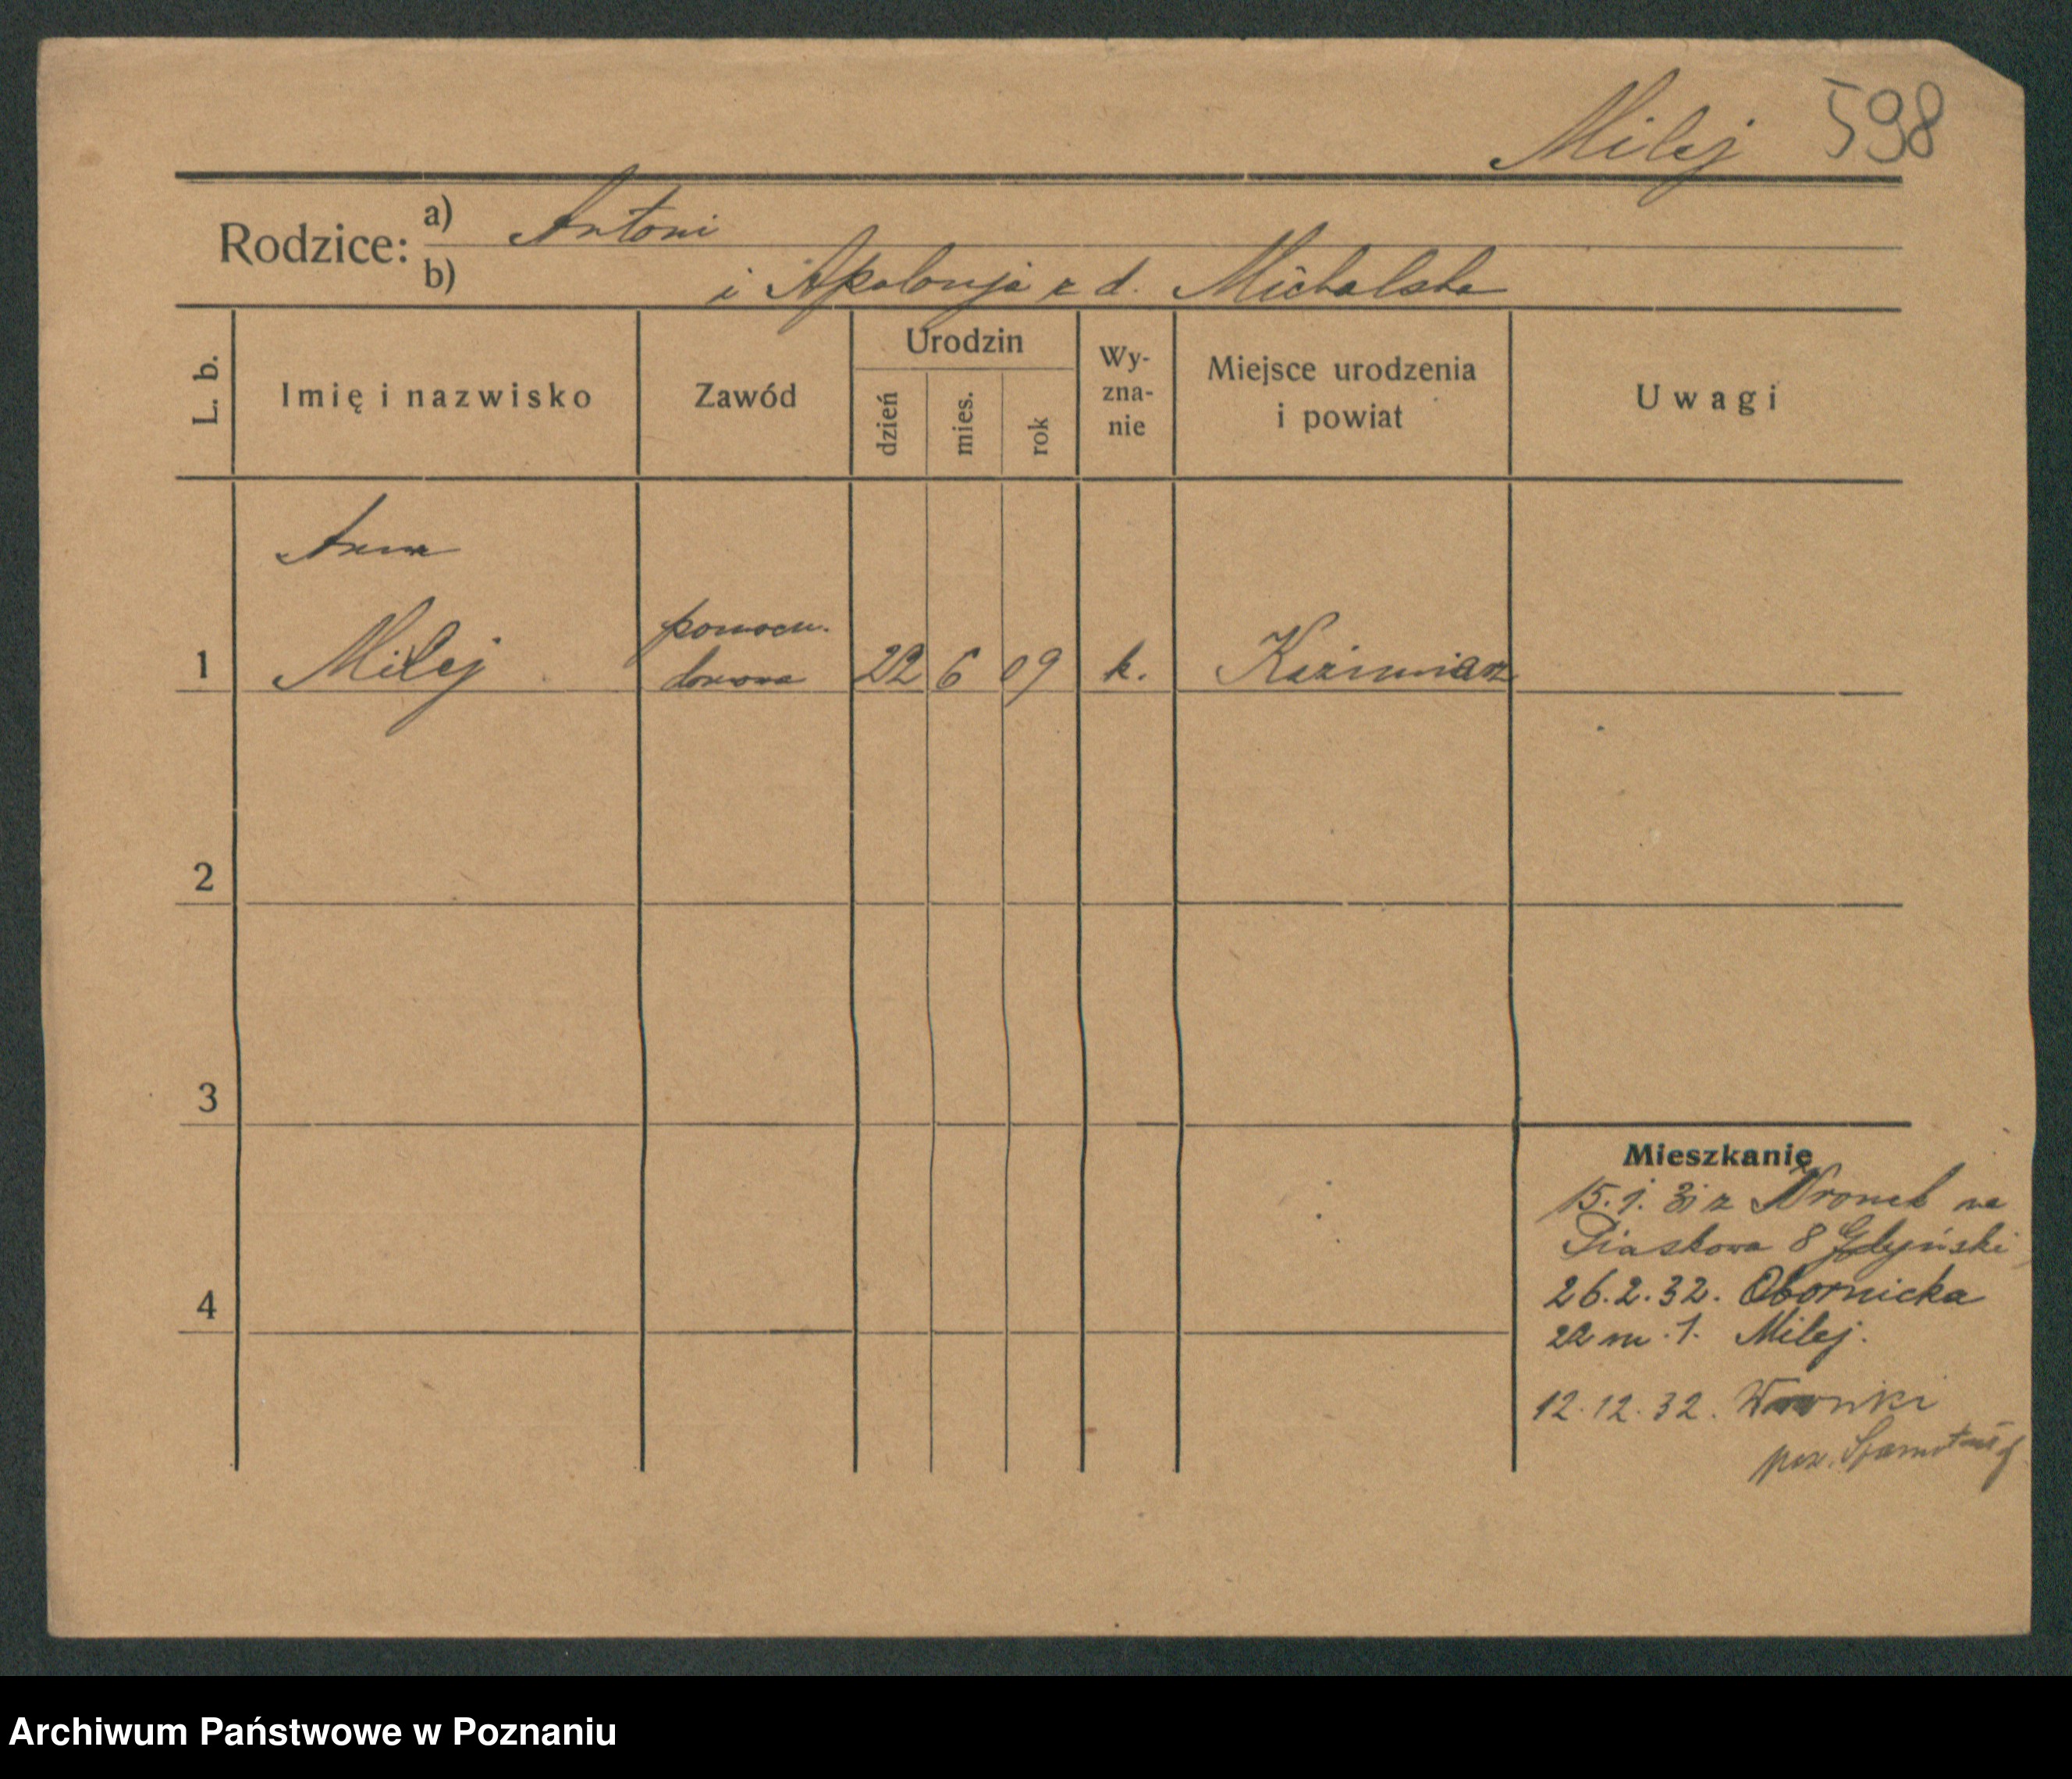 Milej 598
Rodzice: a) Antoni
b) i Apolonja z d. Michalska
L. b. Imię i nazwisko Zawód Urodzin dzień mies. rok Wy-zna-nie Miejsce urodzenia i powiat Uwagi
Anna
1 Milej pomocn. domowa 22 6 09 k. Kaźmierz
2
3
4
Mieszkanie
15.1.31 z Wronek na
Piaskowa 8
26.2.32. Obornicka
22 m. 1. Milej.
12.12.32. Wronki
Archiwum Państwowe w Poznaniu